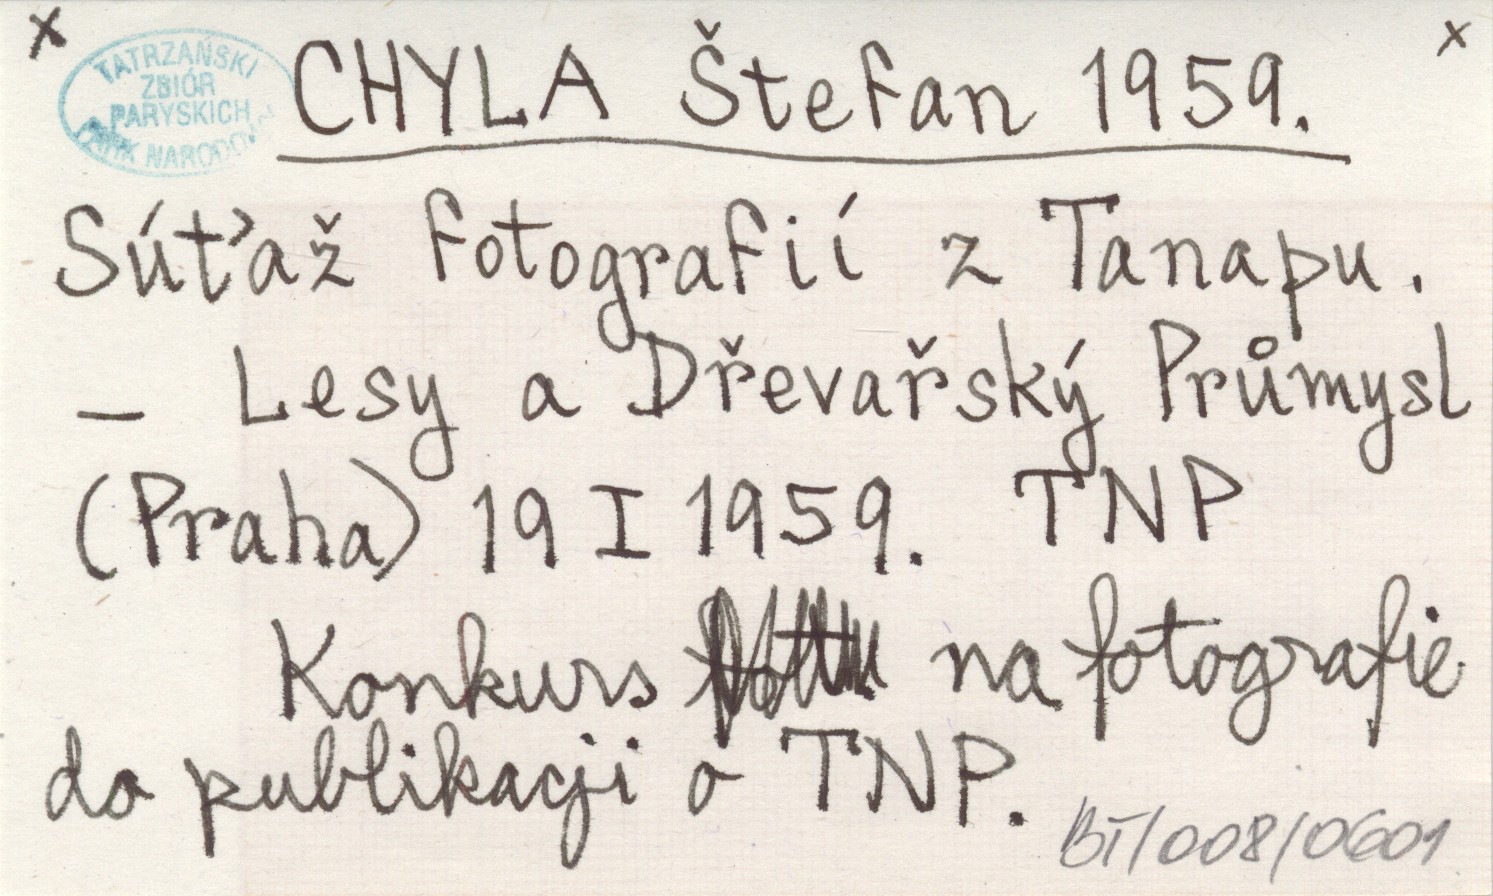 x x
TATRZAŃSKI
ZBIÓR
PARYSKICH
PARK NARODOWY
CHYLA Štefan 1959.
Súťaž fotografií z Tanapu.
— Lesy a Dřevařský Průmysl
(Praha) 19 I 1959. TNP
Konkurs na fotografie
do publikacji o TNP.
BT/008/0601